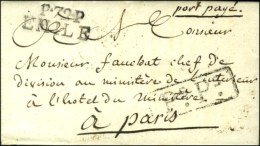 port payé
P.79.P
Monsieur
Monsieur fauchat chef de
division au ministère de l'interieur
à l'hotel du Ministère
à paris